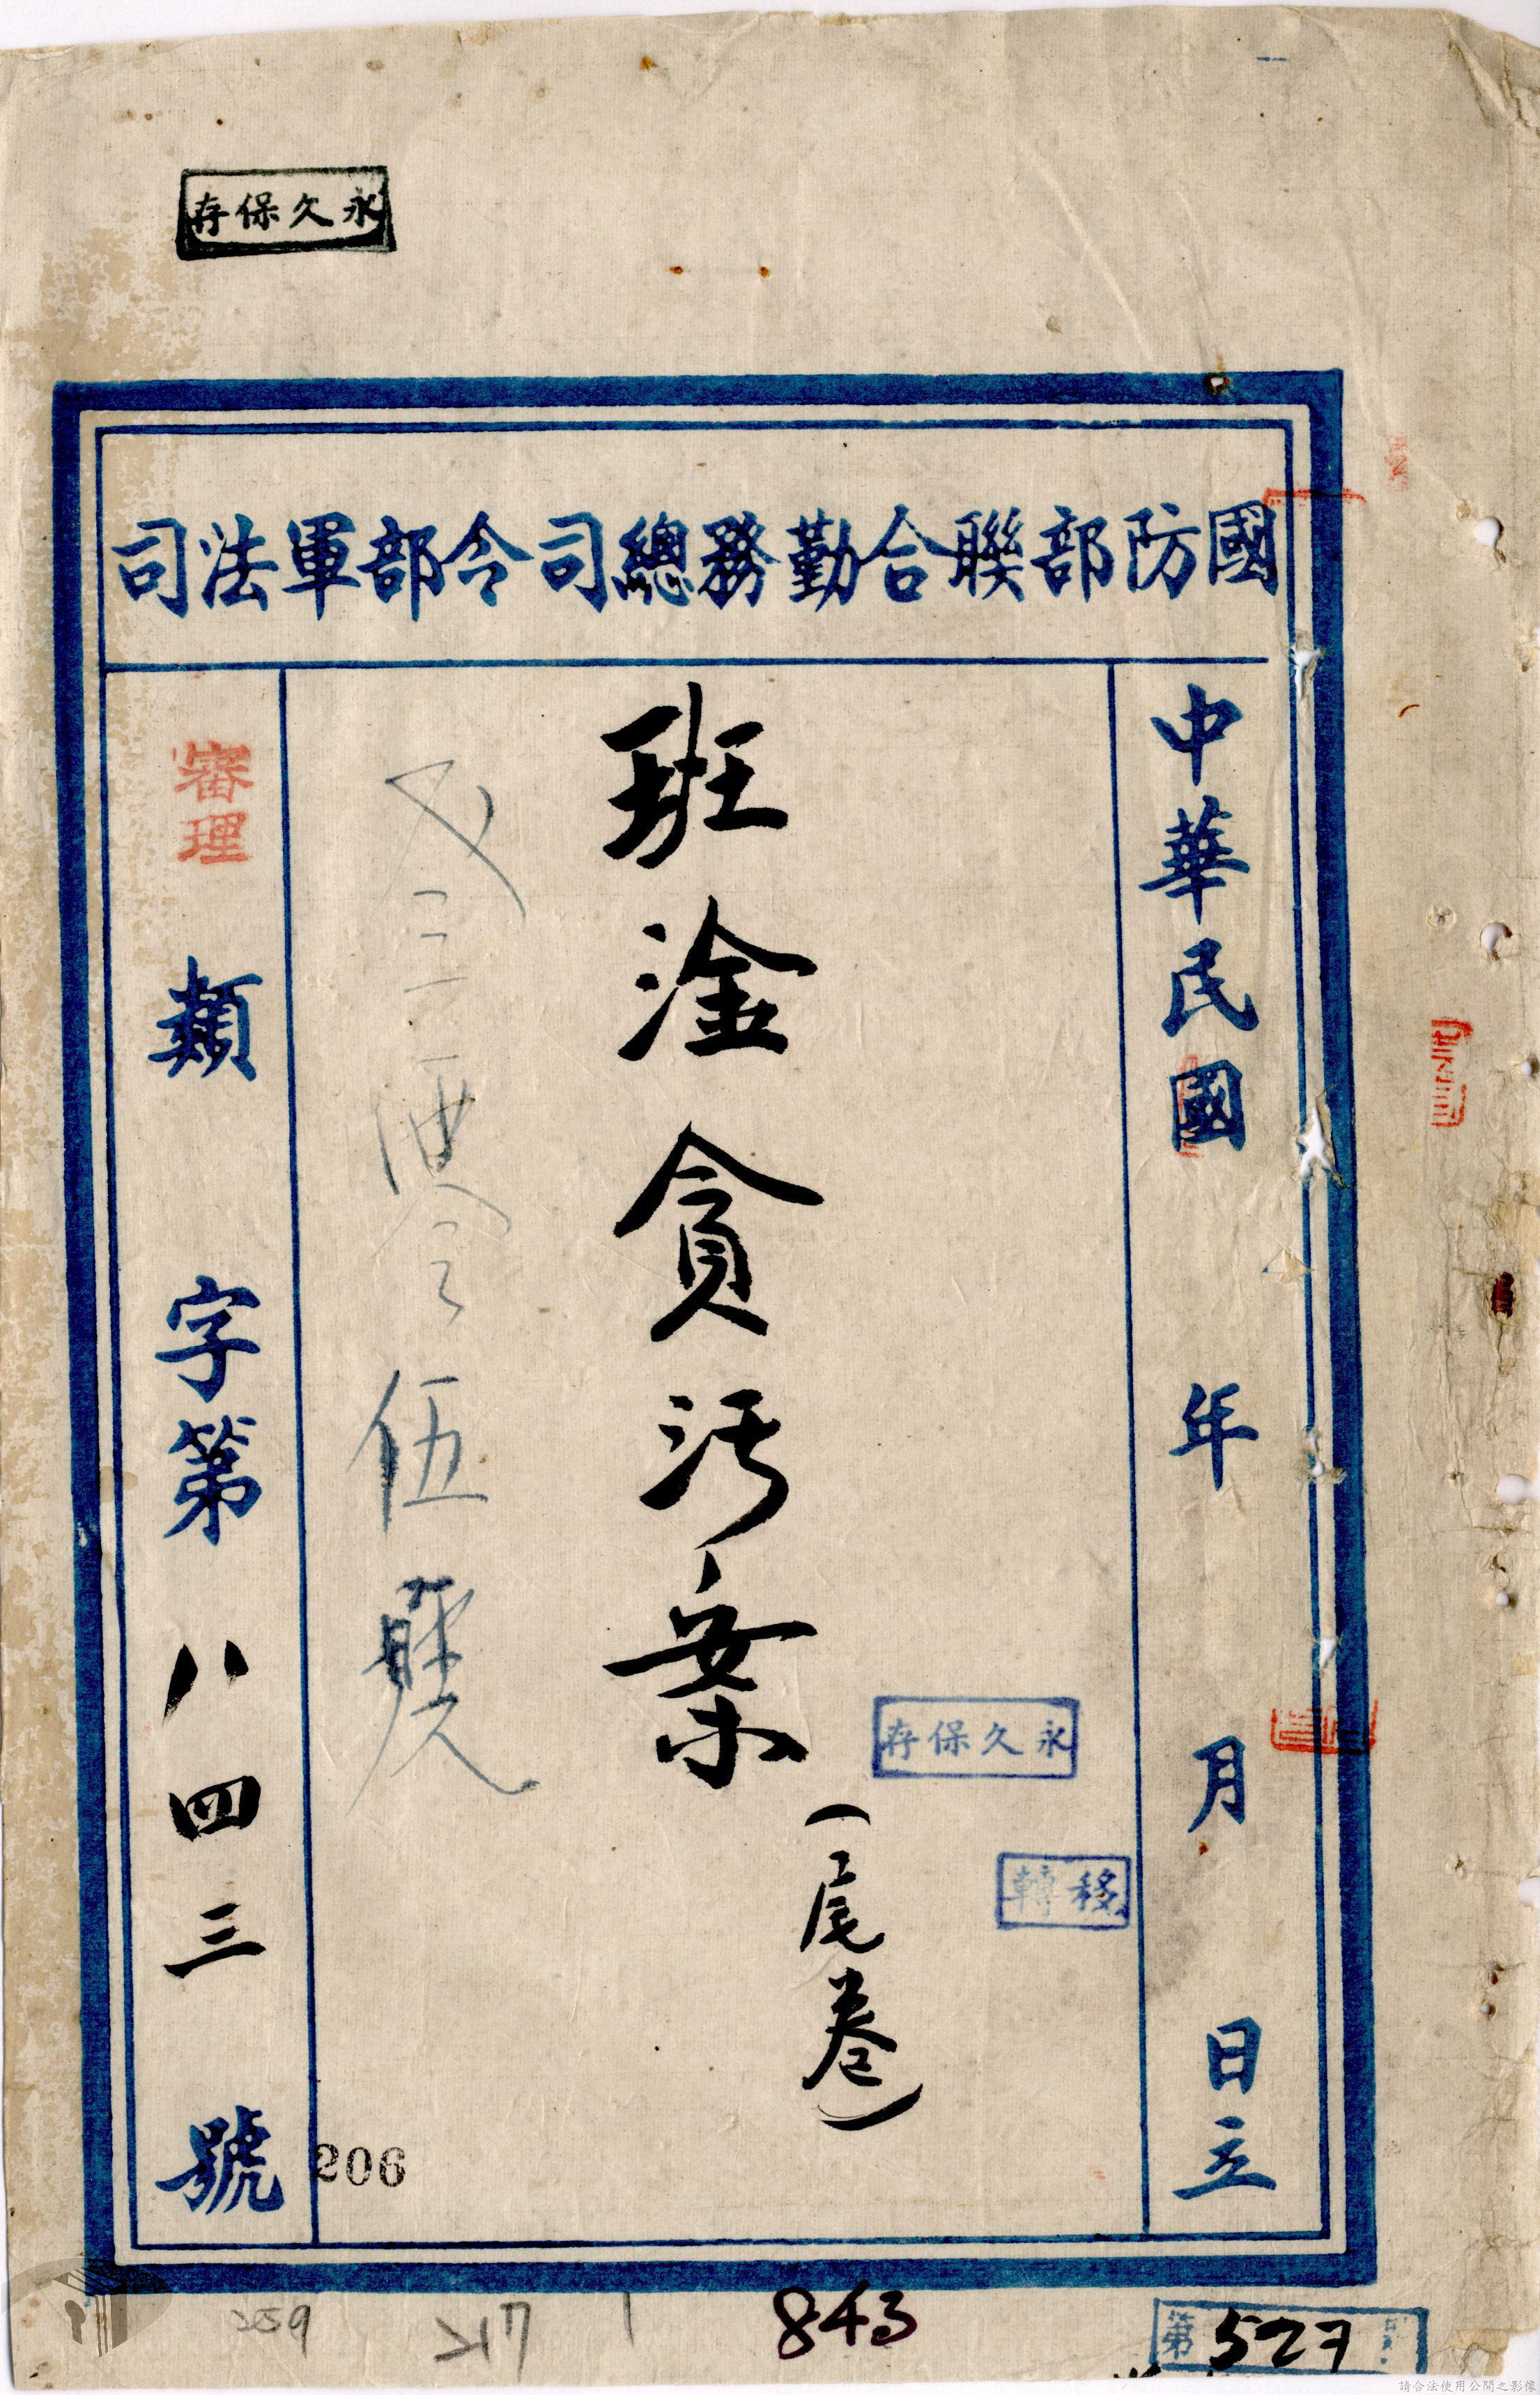 永久保存
國防部聯合勤務總司令部軍法司
中華民國 年 月 日立
永久保存
移轉
班淦貪污案
(尾卷)
伍
審理類字第八四三號
206
259
217
843
第527
請合法使用公開之影像